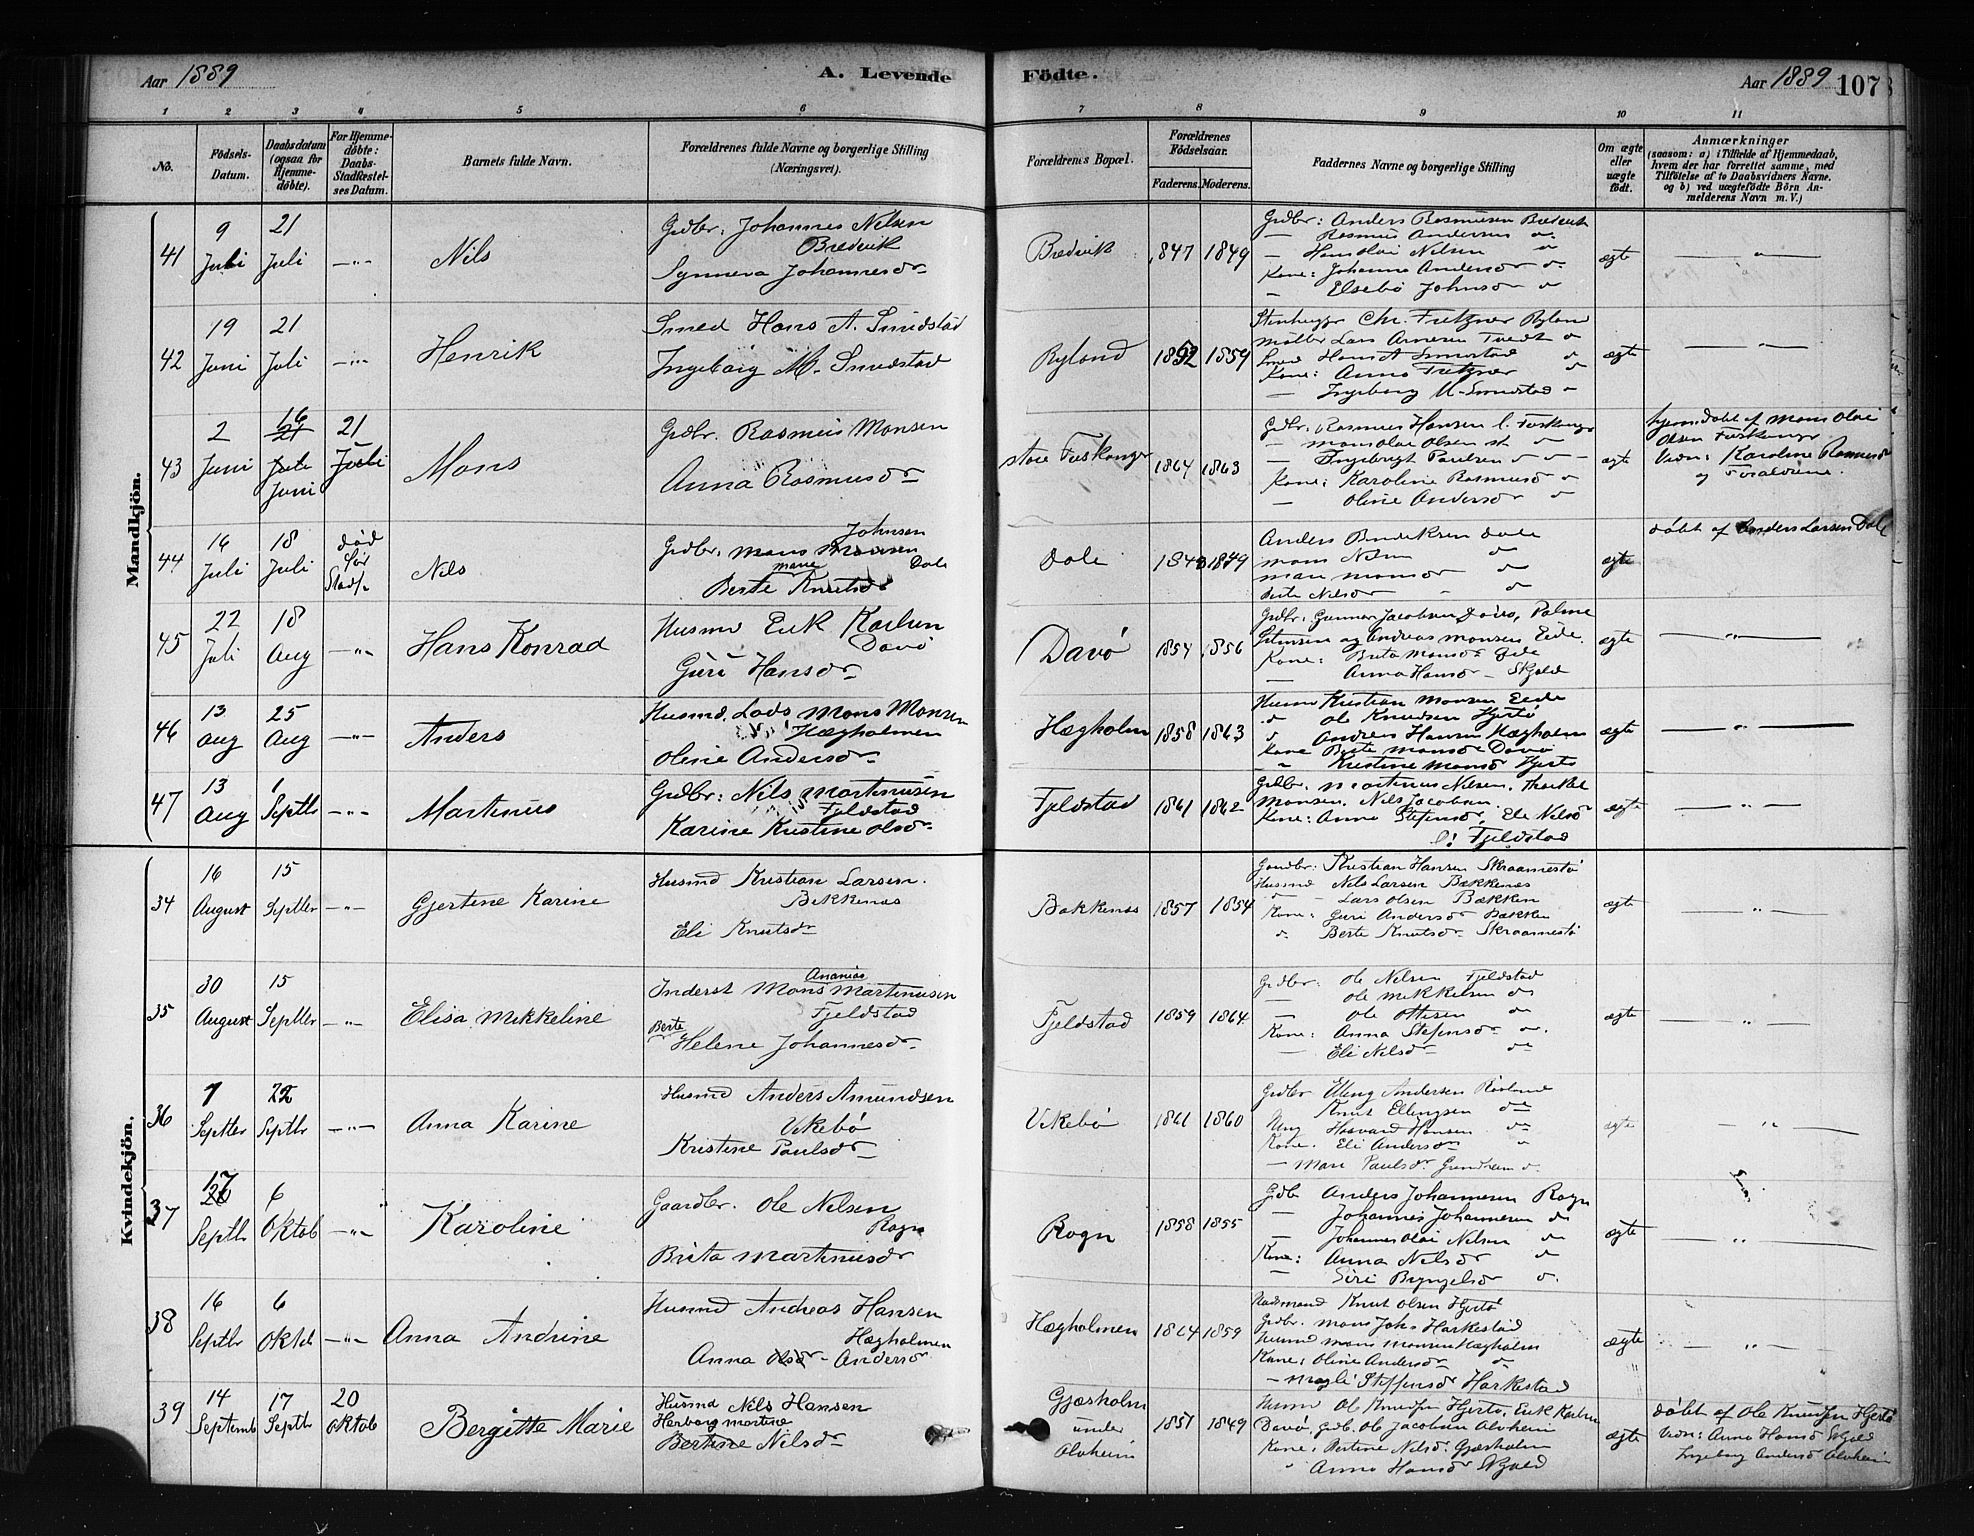 Aar 1889
A. Levende
Födte.
Aar 1889 107
1 2 3 4 5 6 7 8 9 10 11
No.
Födsels-Datum.
Daabsdatum (ogsaa for Hjemme-döbte).
For Hjemme-döbte: Daabs-Stadfæstel-ses Datum.
Barnets fulde Navn.
Forældrenes fulde Navne og borgerlige Stilling (Næringsvei).
Forældrenes Bopæl.
Forældrenes Födselsaar.
Faderens. Moderens.
Faddernes Navne og borgerlige Stilling
Om ægte eller uægte födt.
Anmærkninger
(saasom: a) i Tilfælde af Hjemmedaab,
hvem der har forrettet samme, med
Tilföielse af to Daabsvidners Navne,
og b) ved uægtefödte Börn An-
melderens Navn m. V.)
Mandkjön.
41 9 Juli 21 Juli Nils
Grdbr. Johannes Nilsen
Bredvik
Synneva Johannesdr
Bredvik 1847 1849
Grdbr: Anders Rasmusen Bredvik
Rasmus Andersen do
Hans Olai Nilsen do
Kone: Johanna Andersdr do
Elsebö Johnsdr do
ægte
42 19 Juni 21 Juli Henrik
Smed Hans A. Smidstad
Ingeborg M. Smidstad
Ryland 1852 1859
Chr. Fretzner Ryland
Möller Lars Arnesen Tvedt
Smed Hans A Smidstad
Kone: Anna Fretzner
Ingeborg M. Smidstad
ægte
43 2 Juni 16 Juni 21 Juli Mons
Grdbr. Rasmus Monsen
Anna Rasmusdr
store Fuskanger 1864 1863
Grdbr. Rasmus Hansen l. Fuskanger
Mons Olai Olsen st do
Ingebrigt Paulsen do
Kone: Karoline Rasmusdr do
Oline Andersdr do
ægte
hjemdöbt af Mons Olai
Olsen Fuskanger
Vidn: Karoline Rasmusdr
og Forældrene.
44 16 Juli 18 Juli död för Stadf. Nils
Grdbr. Mons Johnsen
Dale
Berte Marie Knutsdr
Dale 1849
Anders Dale
Mons Nilsen do
Mari Monsdr do
Berte Nilsdr
ægte
döbt af Anders Larsen Dale
45 22 Juli 18 Aug Hans Konrad
Husmd Erik Karlsen
Davö
Guri Hansdr
Davö 1854 1856
Grdbr. Gunnar Jacobsen Davö,
og Andreas Monsen Eide.
Kone: Brita Monsdr Eide
Anna Hansdr Skjold
ægte
46 13 Aug 25 Aug Anders
Husmd. Lods Mons Monsen
Hægholmen
Oline Andersdr
Hægholm 1858 1863
Husmd Kristian Monsen Eide
do Ole Knudsen Hjertö
do Andreas Hansen Hægholm
Kone Berte Monsdr Davö
Kristine Monsdr Hjertö
ægte
47 13 Aug 1 Septbr Martinus
Grdbr: Nils Martinusen
Fjeldstad
Karine Kristine Olsdr
Fjeldstad 1861 1862
Grdbr. Martinus Nilsen,
Monsen, Nils Jacobsen
Kone: Anna Stefensdr, Eli Nilsdr
Fjeldstad
ægte
Kvindekjön.
34 16 August 15 Septbr Gjertine Karine
Husmd Kristian Larsen.
Bekkenes
Eli Knutsdr
Bakkenes 1857 1854
Gaardbr. Kristian Hansen Skraamestö
Husmd Nils Larsen Bækkenes
Lars Olsen Bækken
Kone: Guri Andersdr Bækken
do Berte Knutsdr Skraamestö
ægte
35 30 August 15 Septbr Elisa Mekkeline
Inderst Mons Ananias Martinusen
Fjeldstad
Berte Helene Johannesdr
Fjeldstad 1859 1864
Grdbr: Ole Nilsen Fjeldstad
Ole Mikkelsen do
Ole Ottesen do
Kone: Anna Stefensdr do
Eli Nilsdr do
ægte
36 7 Septbr 22 Septbr Anna Karine
Husmd Anders Amundsen
Vikebö
Kristine Paulsdr
Vikebö 1861 1860
Grdbr Elling Andersen Rösland
Knut Ellingsen do
Ung Haavard Hansen do
Kone. Eli Andersdr
Mari Paulsdr
ægte
37 17 Septbr 6 Oktob Karoline
Gaardbr. Ole Nilsen
Rogn
Brita Martinusdr
Rogn 1858 1855
Gdb Anders Johannesen Rogn
Johannes Johannesen do
Johannes Olai Nilsen do
Kone: Anna Nilsdr do
Siri Bryngelsdr do.
ægte
38 16 Septbr 6 Oktob Anna Andrine
Husmd Andreas Hansen
Hægholmen
Anna Andersdr
Hægholmen 1864 1859
Knut Olsen Hjertö
Gdbr. Mons Johs Harkestad
Husmd Mons Monsen Hægholm
Kone: Oline Andersdr do
Magli Steffensdr Harkestad
ægte
39 14 Septemb 17 Septbr 20 Oktob Bergitte Marie
Husmd Nils Hansen
Herborg Martine
Bertine Nilsdr
Gjæsholm under Alvheim 1851 1849
Husmd Ole Knudsen Hjertö, Erik Karlsen
Davö, gdb. Ole Jacobsen Alvheim
Kone: Bertine Nilsdr Gjæsholm
Anna Hansdr Skjold
ægte
döbt af Ole Knudsen Hjertö
Vidn: Anna Hansdr Skjold
Ingeborg Andersdr Alvheim